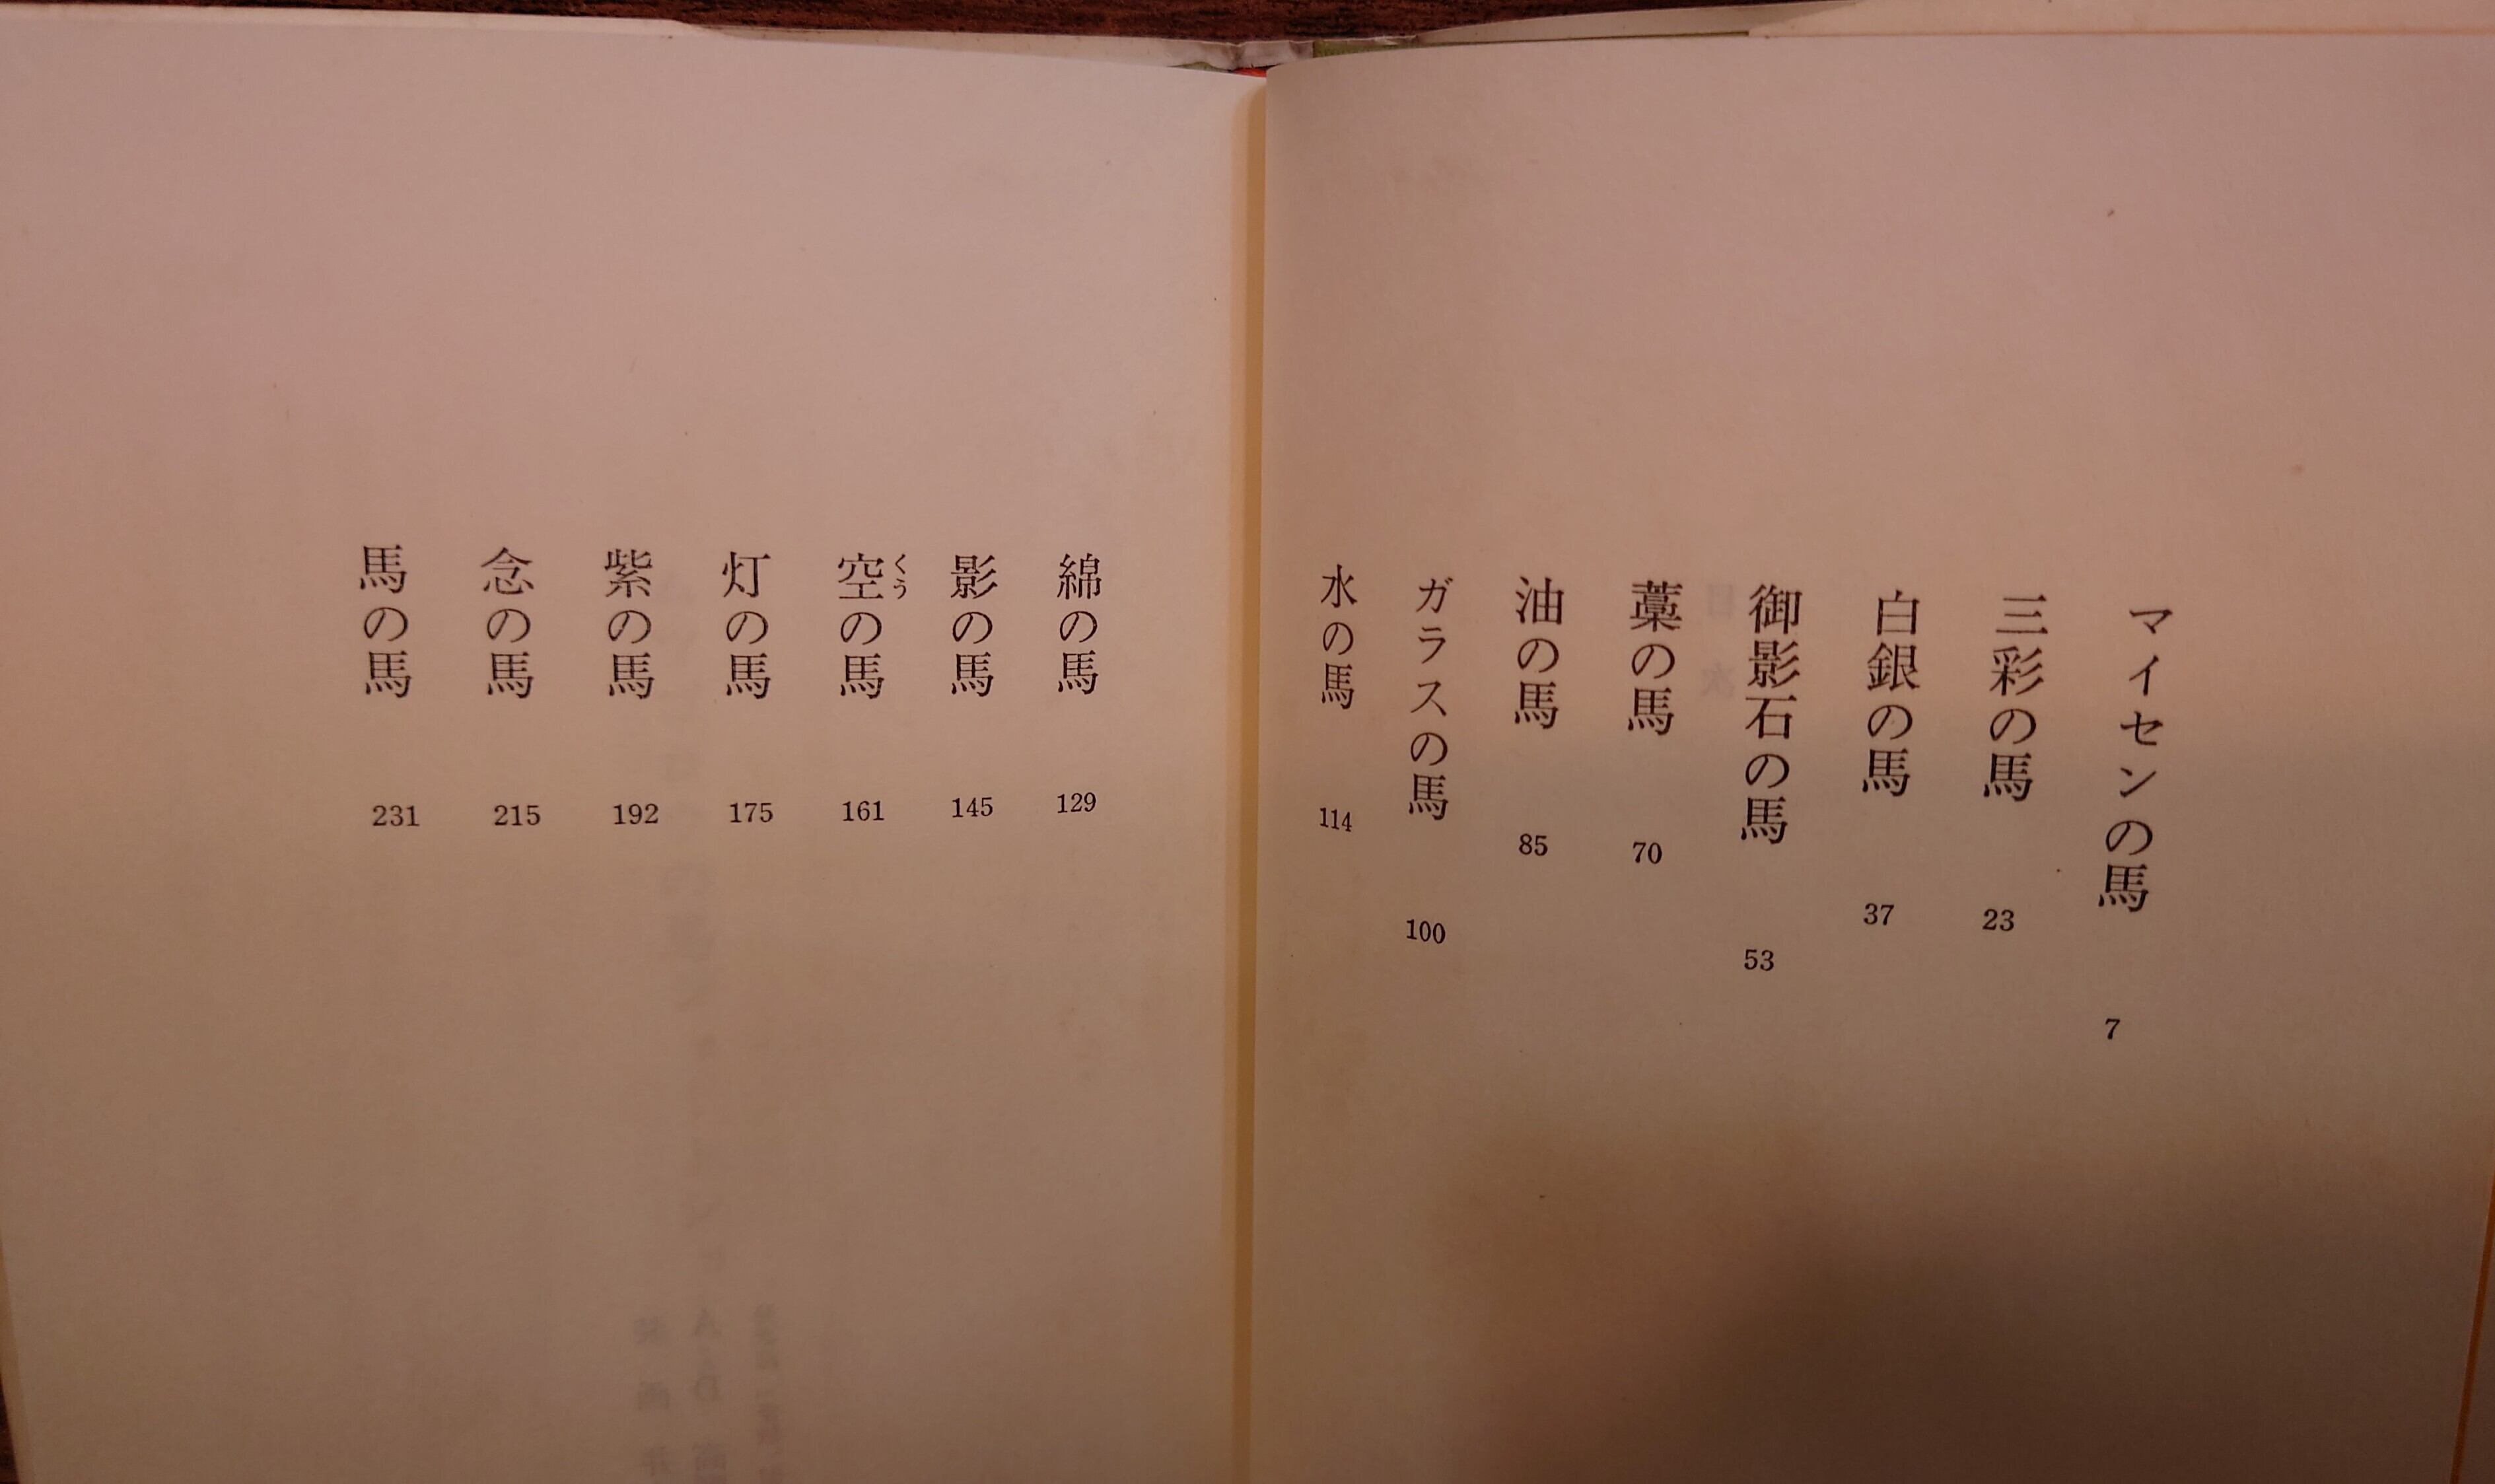 マイセンの馬 7
三彩の馬 23
白銀の馬 37
御影石の馬 53
藁の馬 70
油の馬 85
ガラスの馬 100
水の馬 114
綿の馬 129
影の馬 145
空の馬 161
くう
灯の馬 175
紫の馬 192
念の馬 215
馬の馬 231